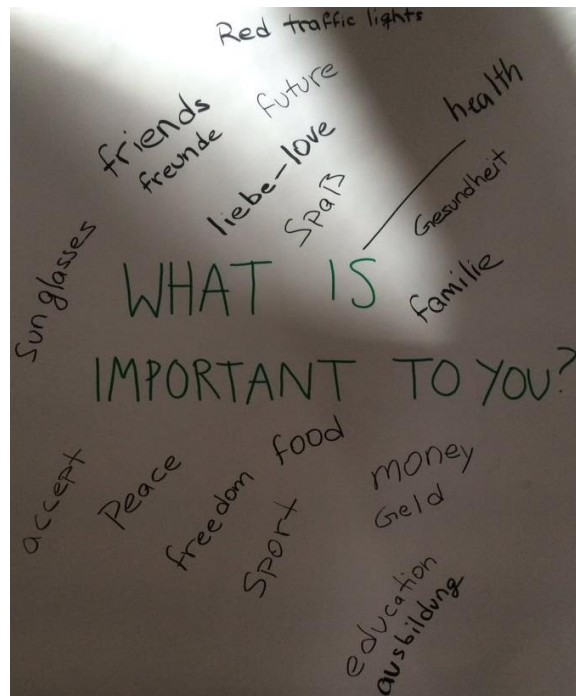 Red traffic lights
friends
freunde
future
health
liebe-love
Spaß
Gesundheit
sunglasses
familie
WHAT IS
IMPORTANT TO YOU?
accept
Peace
freedom
food
Sport
money
Geld
education
ausbildung